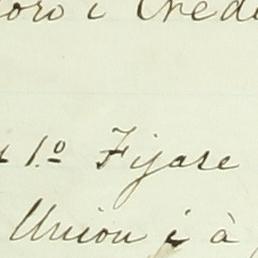 oro i Crédi
1.º Fijase
Union i à